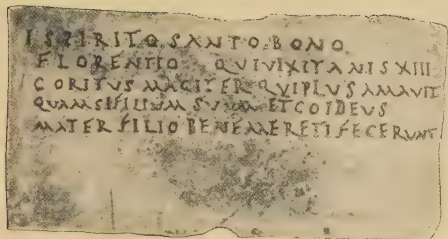 ISPIRITO SANTO BONO
FLORENTIO QUI VIXIT ANIS XIII
CORITUS MAGITER QUI PLUS AMAVIT
QUAM SI FILIUM SUUM ET COIDEUS
MATER FILIO BENEMERETI FECERUNT